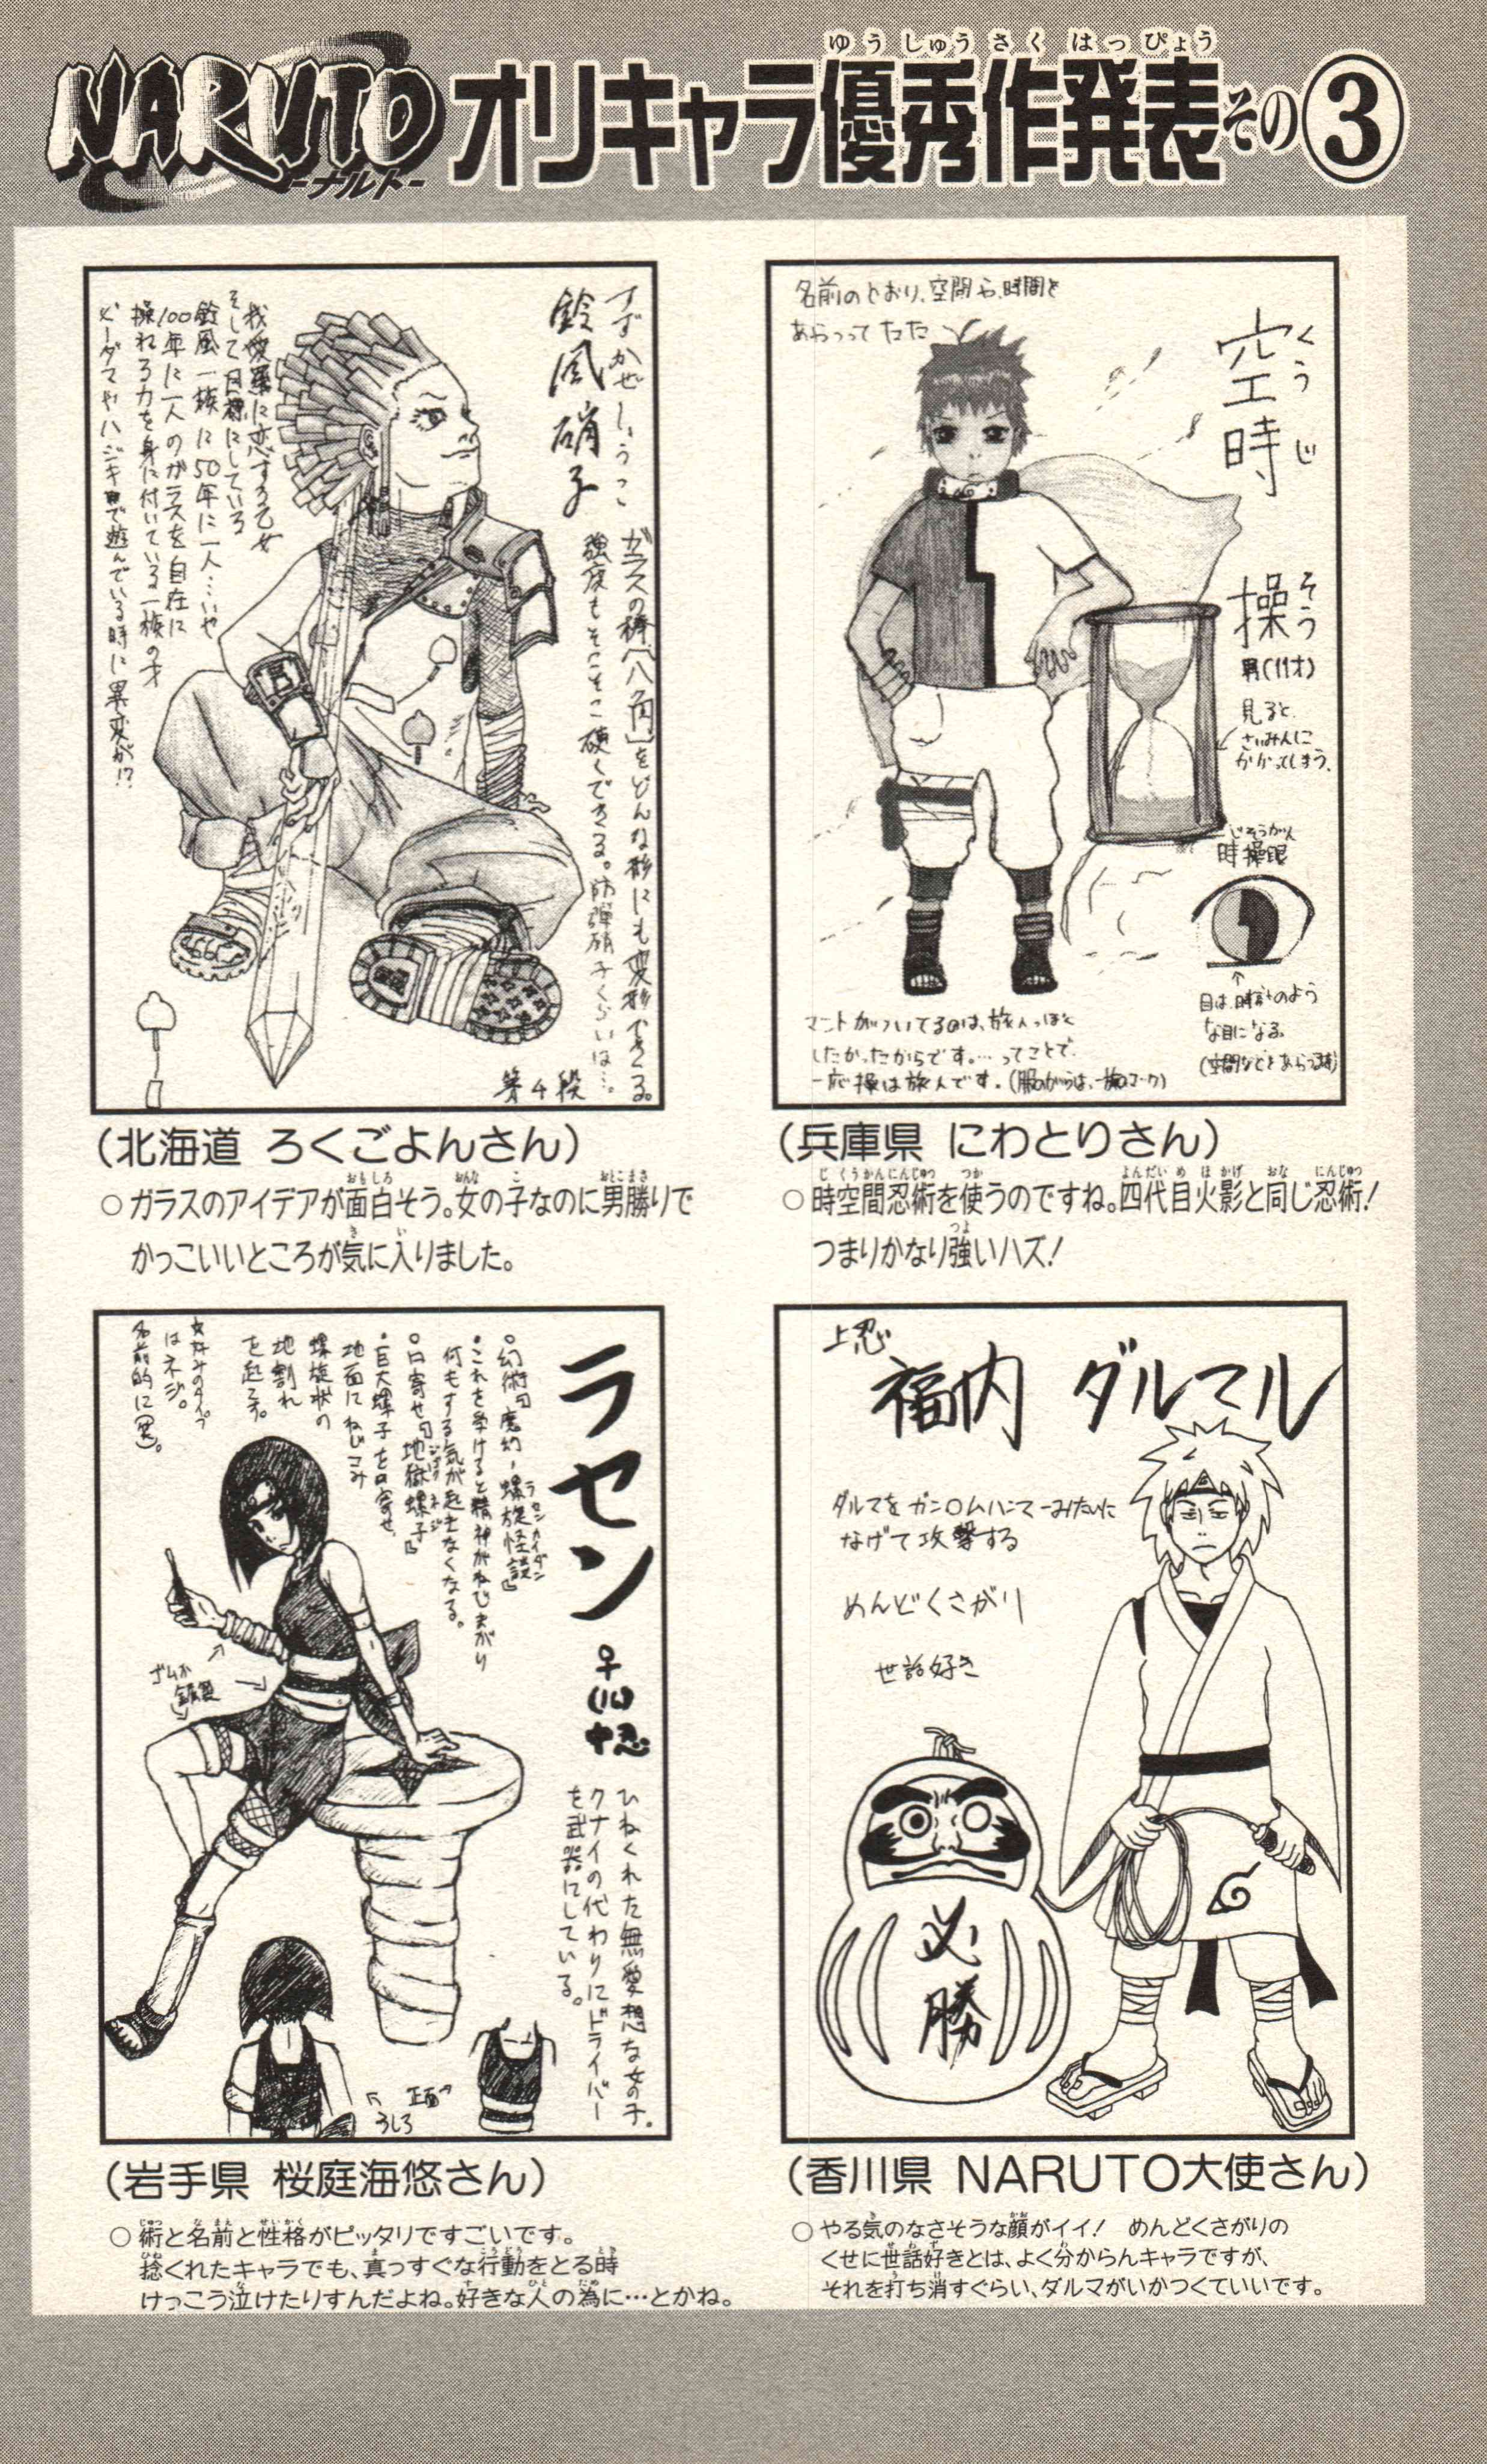 NARUTO
-ナルト-
オリキャラ優秀作発表その③
ゆうしゅうさくはっぴょう
すずかぜしょうこ
鈴風硝子
ガラスの棒「八角」をどんな形にも変形できる。
強度もそこそこ硬くできる。防弾硝子くらいは…。
我愛羅に恋する乙女
そして目標にしている
鈴風一族に50年に一人…いや
100年に一人のガラスを自在に
操れる力を身に付けている一族の子
ビーダマやハジキで遊んでいる時に異変が!?
第4段
(北海道 ろくごよんさん)
○ガラスのアイデアが面白そう。女の子なのに男勝りで
かっこいいところが気に入りました。
名前のとおり、空間や、時間を
あらつってたた
くうじ
空時
そう
操
男(11才)
見ると、
さいみんに
かかってしまう。
じそうがん
時操眼
目は、時計のよう
な目になる。
(空間などをあらつ
マントがついてるのは、旅人っぽく
したかったからです。…ってことで、
一応操は旅人です。(服のがらは、一族のマーク)
(兵庫県 にわとりさん)
○時空間忍術を使うのですね。四代目火影と同じ忍術!
つまりかなり強いハズ!
ラセン
♀
中忍
ひねくれた無愛想な女の子。
クナイの代わりにドライバー
を武器にしている。
○幻術『魔幻・螺旋怪談』
ラセンカイダン
・これを受けると精神がねじまがり
何もする気が起きなくなる。
○口寄せ『地獄螺子』
ジゴクネジ
・巨大螺子を口寄せ、
地面にねじこみ
螺旋状の
地割れ
を起こす。
好みのタイプ
はネジ。
名前的に(笑)。
ゴムか
正面
うしろ
(岩手県 桜庭海悠さん)
○術と名前と性格がピッタリですごいです。
捻くれたキャラでも、真っすぐな行動をとる時
けっこう泣けたりすんだよね。好きな人の為に…とかね。
上忍
福内 ダルマル
ダルマをガン○ムハンマーみたいに
なげて攻撃する
めんどくさがり
世話好き
必勝
(香川県 NARUTO大使さん)
○やる気のなさそうな顔がイイ! めんどくさがりの
くせに世話好きとは、よく分からんキャラですが、
それを打ち消すぐらい、ダルマがいかつくていいです。